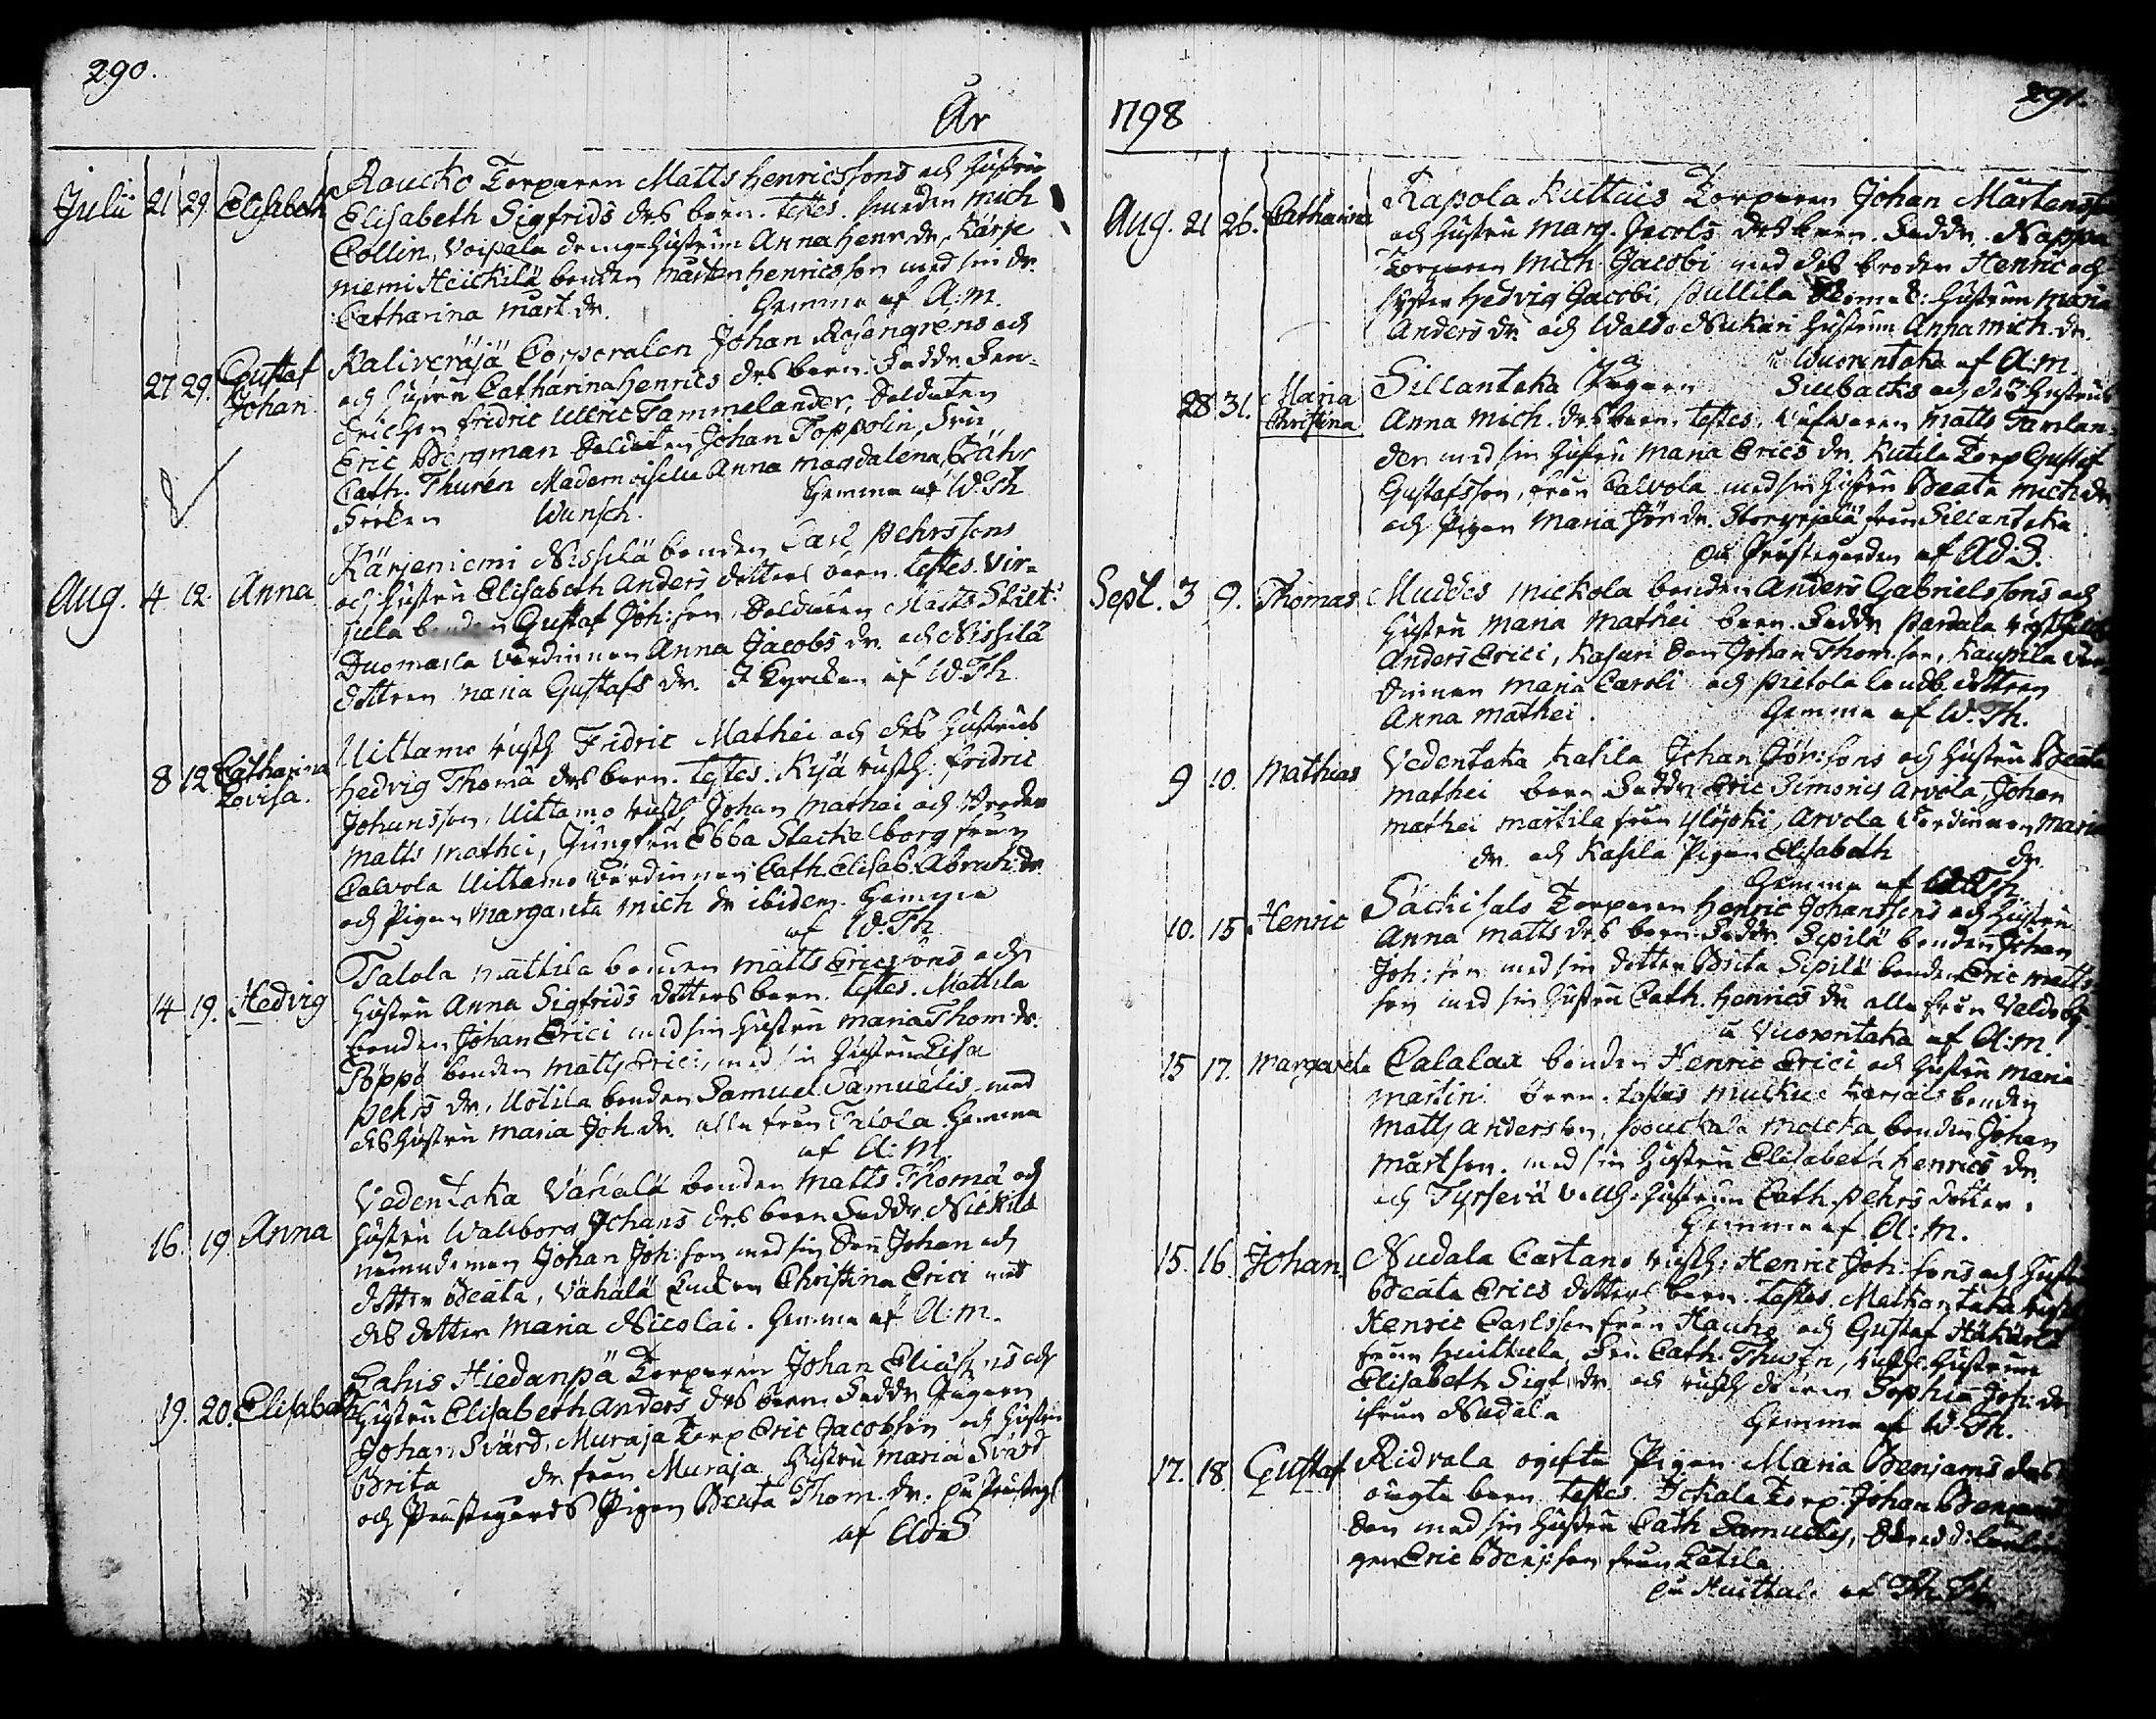 290.
År
Julii 21 29. Elisabeth Roucko Torparen Matts Henricssons och Hustru
Elisabeth Sigfrids des barn. testes. Smeden Mich
Collin, Voipala drengehustrun Anna Henr. dr, Kärje
niemi Heickilä bonden Mårten Henricsson med sin dr.
Catharina Mårt. dr. Hemma af A: M.
27 29. Gustaf Johan Corporalen Johan Rosengréns och
hustru Catharina Henrics des barn. Faddr. Fen-
drichen Fridric Ulric Tammelander, Soldaten
Eric Bergman Soldaten Johan Toppolin, Fru
Cath. Thurén Mademoiselle Anna Magdalena
Fröken Wunsch. Hemma af W. Th
Aug. 4 12. Anna Kärjeniemi Nissilä bonden Carl Pehrssons
och hustru Elisabeth Anders dotters barn. testes. Vir-
bonden Gustaf Joh: son, Soldaten Matts
värdinnan Anna Jacobs dr. och Nissilä
dottren Maria Gustafs dr. I Kyrckan af W. Th.
8 12 Catharina Lovisa. Uittamo rusth. Fridric Mathei och des hustrus
Hedvig Thomä des barn. testes. rusth. Fridric
Johansson, Uittamo rusth. Johan Mathei och Broder
Matts Mathei, Jungfru Ebba Stackelborg från
Calvola Uittamo värdinnan Cath. Elisab. Abrah: dr
och Pigan Margareta Mich dr ibidem. Hemma
af W. Th.
14 19. Hedvig Talola Mattila bonden Matts Ericssons och
hustru Anna Sigfrids dotters barn. testes. Mattila
bonden Johan Erici med sin hustru Maria Thom. dr.
Pöppö bonden Matts Erici, med sin hustru Lisa
Pehrs dr, Uotila bonden Samuel Samuelis med
des hustru Maria Joh. dr. alla från Talola. Hemma
af A: M.
16. 19 Anna Vedentaka Vähälä bonden Matts Thomä och
hustru Walborg Johans des barn Faddr. Nickilä
nämndeman Johan Joh: son med sin Son Johan och
dotter Beata, Vähälä Enkan Christina Erici med
des dotter Maria Nicolai. Hemma af A: M.
19. 20. Elisabeth Lahis Hiedanpä Torparen Johan Eliassons och
Hustru Elisabeth Anders des barn Faddr
Johan Svärd, Muraja Torp Eric Jacobson och hustru
Brita dr. från Muraja hustru Maria Svärd
och Prästegårds Pigan Beata Thom. dr.
af

1798
291.
Aug. 21 26. Catharina Rapola Kuttais Torparen Johan Mårtensson
och hustru Marg. Jacobs des barn. Faddr.
Torparen Mich. Jacobi med des broder Henric och
syster Hedvig Jacobi, Pullila hustrun Maria
Anders dr. och Waldo Nukari hustrun Anna Mich. dr.
i Wuorentaka af A: M.
28. 31. Maria Christina Sillantaka och des Hustrus
Anna Mich. des barn. testes. Matts
der med sin hustru Maria Erics dr. Kutila Torp Gustaf
Gustafsson, från Calvola med sin hustru Beata Mich. dr
och Pigan Maria Jör. dr. från Sillantaka
På Prästegården af Ad: S.
Sept. 3 9. Thomas Muddes Mickola bonden Anders Gabrielssons och
hustru Maria Mathei barn. Faddr Pardala
Anders Erici, Kasuri Son Johan Thom: son, Kaupila Vär-
dinnan Maria Caroli och Pietola landb. dottren
Anna Mathei. Hemma af W. Th.
9 10. Mathias Vedentaka Kasila Johan Jör: sons och hustru Beata
Mathei barn Faddr Eric Simonis Arvola, Johan
Mathei Martila från Ylöjoki, Arvola Värdinnan Maria
dr. och Kasila Pigan Elisabeth dr.
Hemma af W. Th
10. 15 Henric Säckisalo Torparen Henric Johanssons och hustru
Anna Matts des barn. Faddr Sipilä bonden Johan
Joh: son med sin dotter Brita Sipilä bonden Eric Matts
son med sin hustru Cath. Henrics dr alla från
i Vuorentaka af A: M.
15 17. Margareta Calalax bonden Henric Erici och hustru Maria
Martini barn. testes bonden
Matts Andersson, bonden Johan
Mårtson. med sin hustru Elisabeth Henrics dr.
och hustrun Cath. Pehrs dotter.
Hemma af A: M.
15. 16. Johan. Nudala Cartano rusth: Henric Joh: sons och hustru
Beata Erics dotters barn. testes. rusth.
Henric Carlsson från Hauho och Gustaf
från Huittula, Fru Cath. Thurén, rusth. hustrun
Elisabeth Sigf. dr. och rusth dottren Sophia Joh: dr
ifrån Nudala Hemma af W. Th.
17. 18. Gustaf Ridvala ogifta Pigan Maria Benjams des
oägta barn. testes. Torp. Johan Benjams
son med sin hustru Cath. Samuelis,
gen Eric Benj: son från